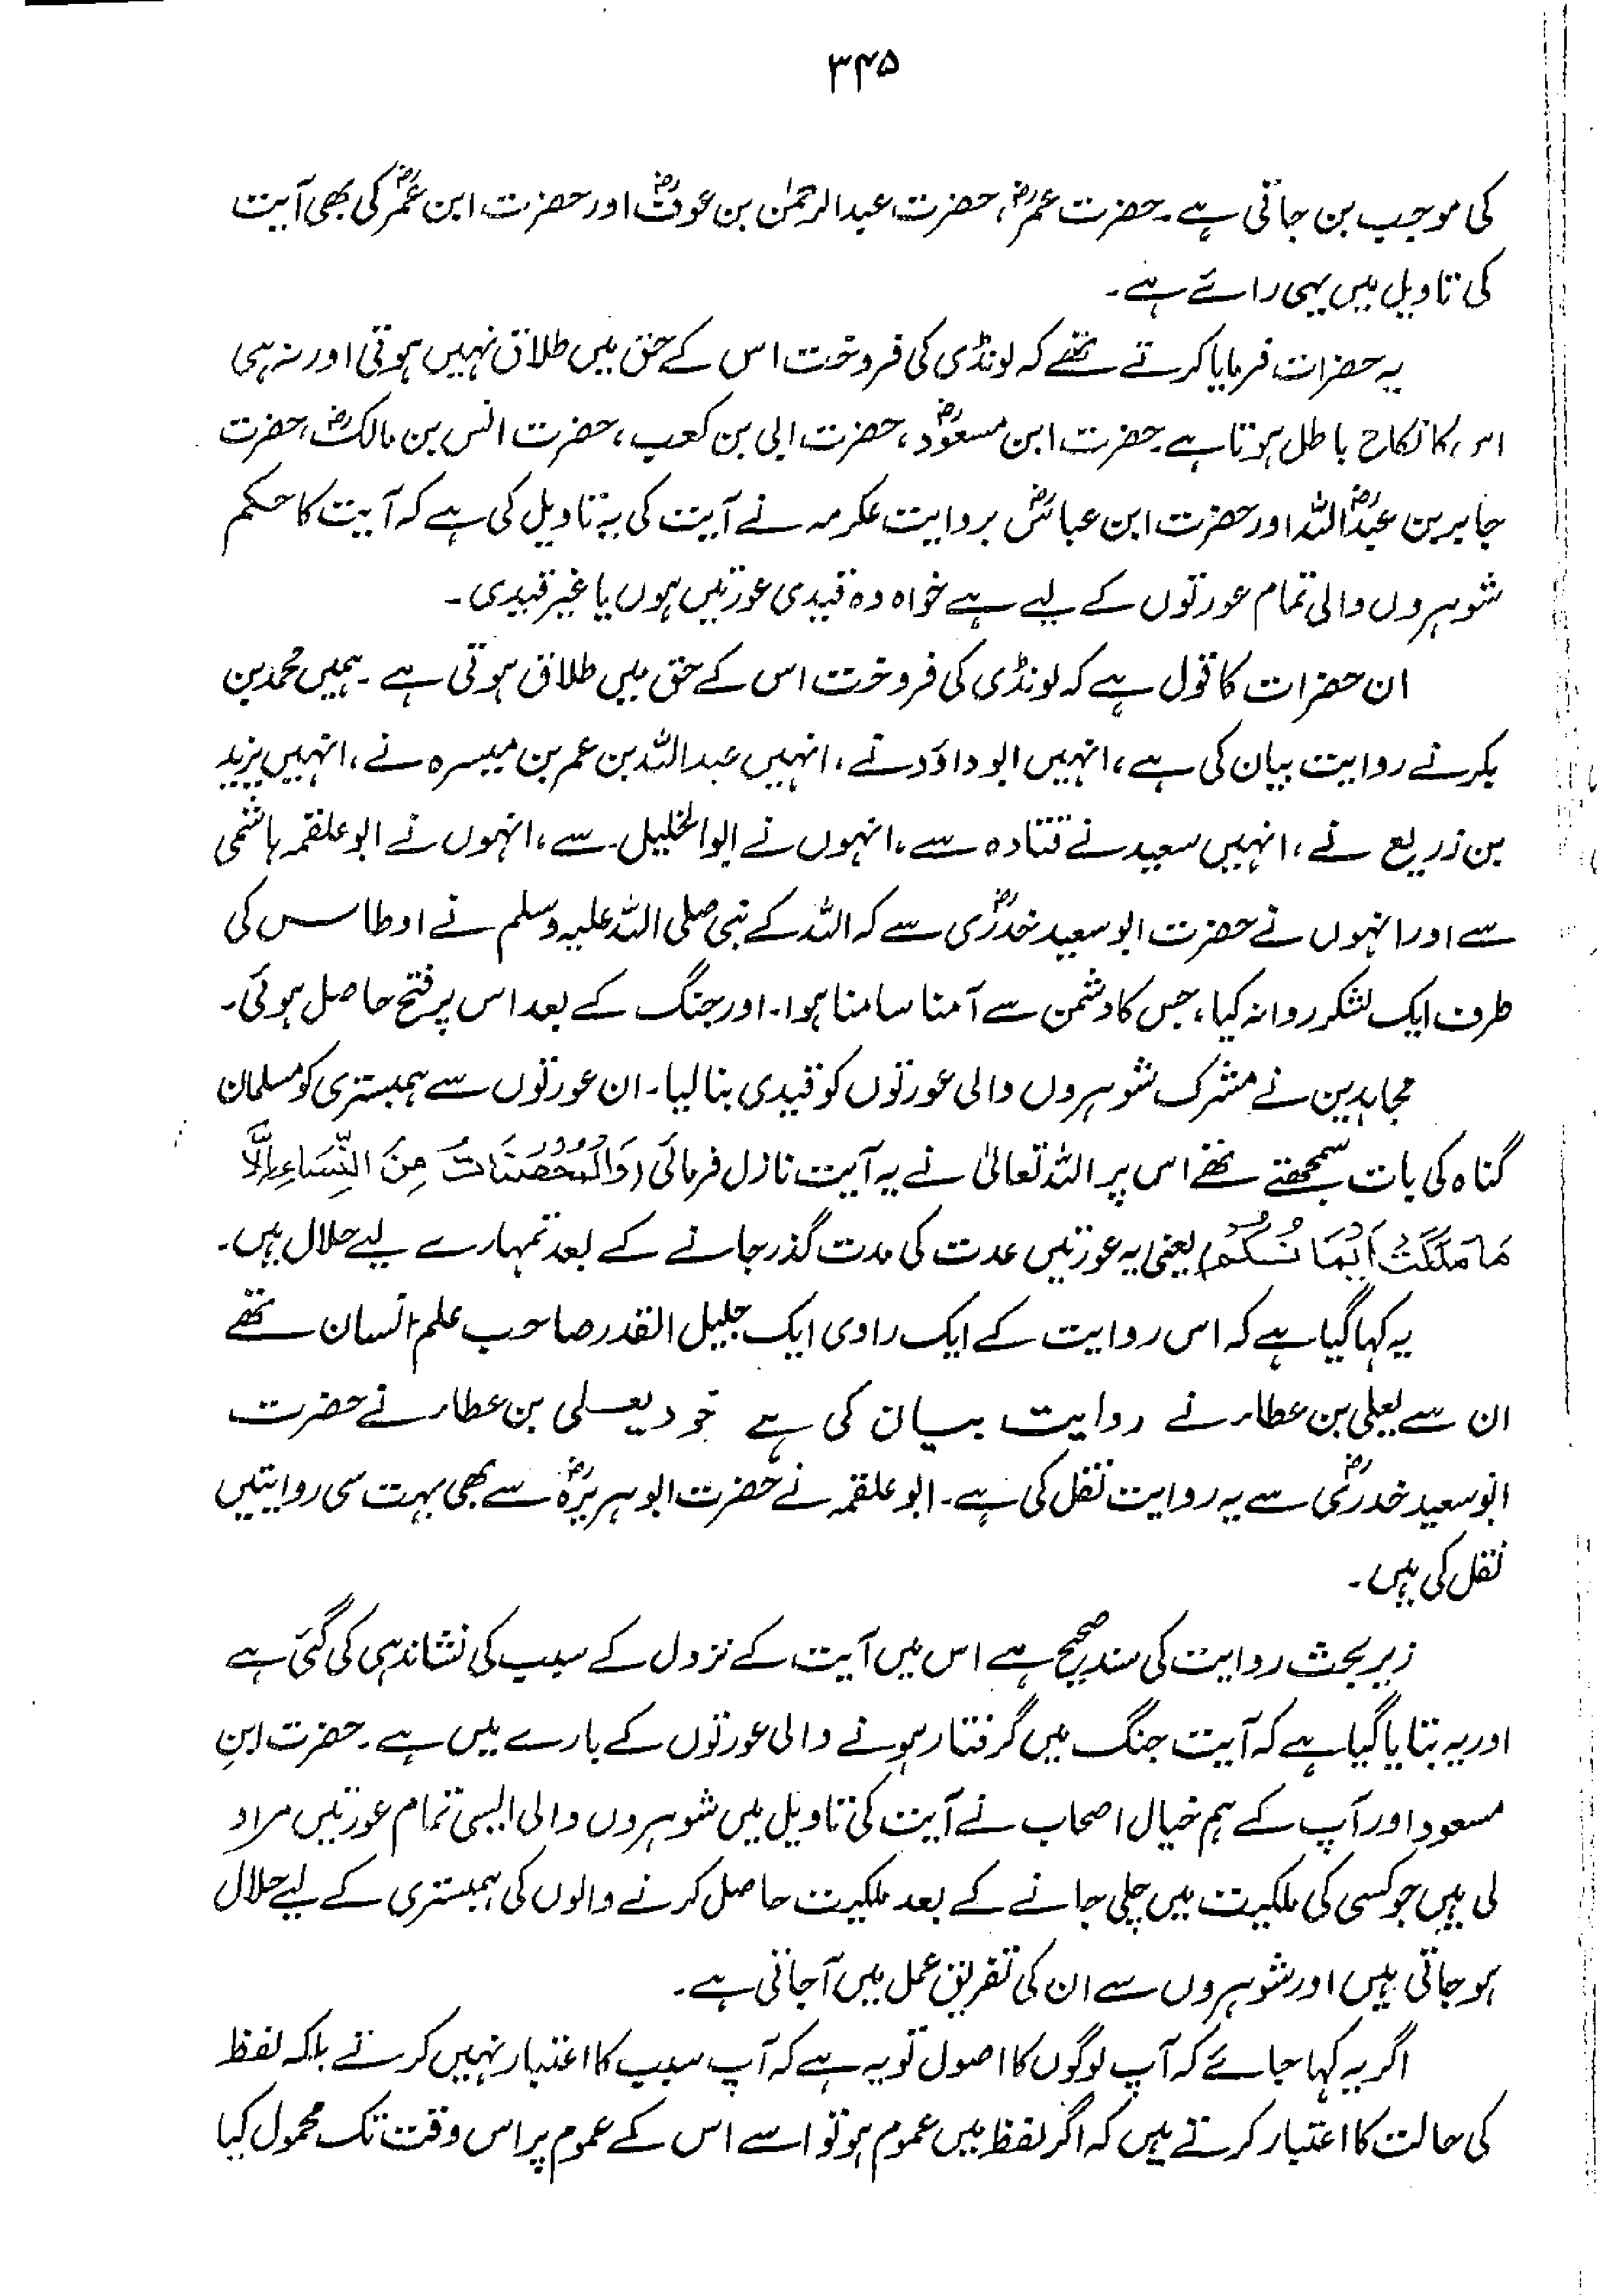 ۳۴۵
کی موجب بن جاتی ہے۔ حضرت عمرؓ، حضرت عبدالرحمٰن بن عوفؓ اور حضرت ابن عمرؓ کی بھی آیت
کی تاویل میں یہی رائے ہے۔
یہ حضرات فرمایا کرتے تھے کہ لونڈی کی فروخت اس کے حق میں طلاق نہیں ہوتی اور نہ ہی
اس کا نکاح باطل ہوتا ہے۔ حضرت ابن مسعودؓ، حضرت ابی بن کعب، حضرت انس بن مالکؓ، حضرت
جابر بن عبداللہؓ اور حضرت ابن عباسؓ بروایت عکرمہ نے آیت کی یہ تاویل کی ہے کہ آیت کا حکم
شوہروں والی تمام عورتوں کے لیے ہے خواہ وہ قیدی عورتیں ہوں یا غیر قیدی۔
ان حضرات کا قول ہے کہ لونڈی کی فروخت اس کے حق میں طلاق ہوتی ہے۔ ہمیں محمد بن
بکر نے روایت بیان کی ہے، انہیں ابو داؤد نے، انہیں عبداللہ بن عمر بن میسرہ نے، انہیں یزید
بن زریع نے، انہیں سعید نے قتادہ سے، انہوں نے ابوالخلیل سے، انہوں نے ابو علقمہ ہاشمی
سے اور انہوں نے حضرت ابو سعید خدریؓ سے کہ اللہ کے نبی صلی اللہ علیہ وسلم نے اوطاس کی
طرف ایک لشکر روانہ کیا، جس کا دشمن سے آمنا سامنا ہوا۔ اور جنگ کے بعد اس پر فتح حاصل ہوئی۔
مجاہدین نے مشرک شوہروں والی عورتوں کو قیدی بنا لیا۔ ان عورتوں سے ہمبستری کو مسلمان
گناہ کی بات سمجھتے تھے اس پر اللہ تعالیٰ نے یہ آیت نازل فرمائی (وَالْمُحْصَنَاتُ مِنَ النِّسَاءِ اِلَّا
مَا مَلَكَتْ اَيْمَانُكُمْ) یعنی یہ عورتیں عدت کی مدت گذر جانے کے بعد تمہارے لیے حلال ہیں۔
یہ کہا گیا ہے کہ اس روایت کے ایک راوی ایک جلیل القدر صاحب علم انسان تھے
ان سے یعلی بن عطاء نے روایت بیان کی ہے خود یعلی بن عطاء نے حضرت
ابو سعید خدریؓ سے یہ روایت نقل کی ہے۔ ابو علقمہ نے حضرت ابو ہریرہؓ سے بھی بہت سی روایتیں
نقل کی ہیں۔
زیر بحث روایت کی سند صحیح ہے اس میں آیت کے نزول کے سبب کی نشاندہی کی گئی ہے
اور یہ بتایا گیا ہے کہ آیت جنگ میں گرفتار ہونے والی عورتوں کے بارے میں ہے۔ حضرت ابنِ
مسعود اور آپ کے ہم خیال اصحاب نے آیت کی تاویل میں شوہروں والی ایسی تمام عورتیں مراد
لی ہیں جو کسی کی ملکیت میں چلی جانے کے بعد ملکیت حاصل کرنے والوں کی ہمبستری کے لیے حلال
ہو جاتی ہیں اور شوہروں سے ان کی تفریق عمل میں آجاتی ہے۔
اگر یہ کہا جائے کہ آپ لوگوں کا اصول تو یہ ہے کہ آپ سبب کا اعتبار نہیں کرتے بلکہ لفظ
کی حالت کا اعتبار کرتے ہیں کہ اگر لفظ میں عموم ہو تو اسے اس کے عموم پر اس وقت تک محمول کیا